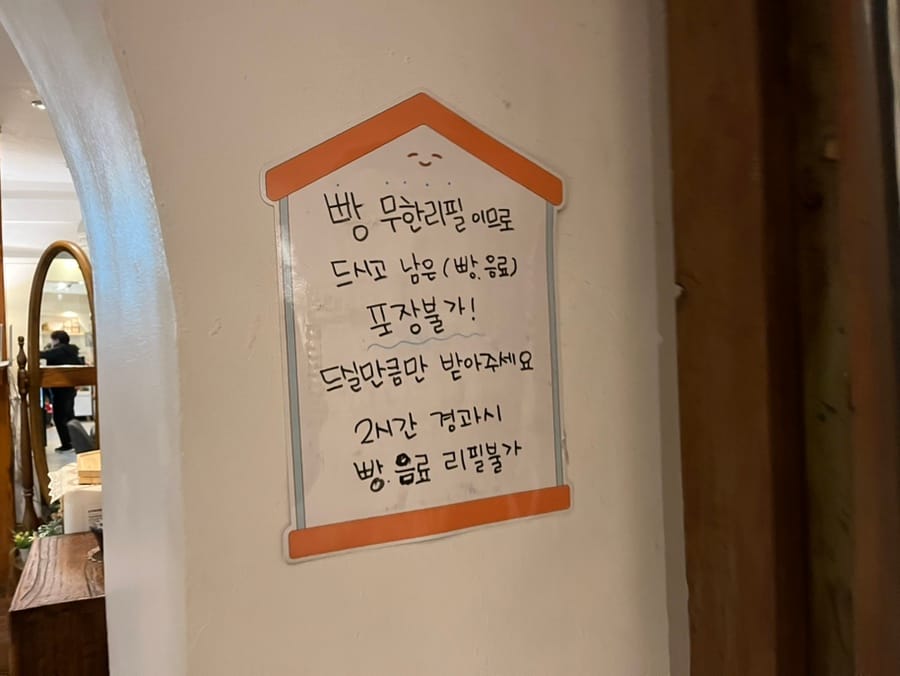 빵 무한리필 이므로
드시고 남은 (빵.음료)
포장불가!
드실만큼만 받아주세요
2시간 경과시
빵.음료 리필불가